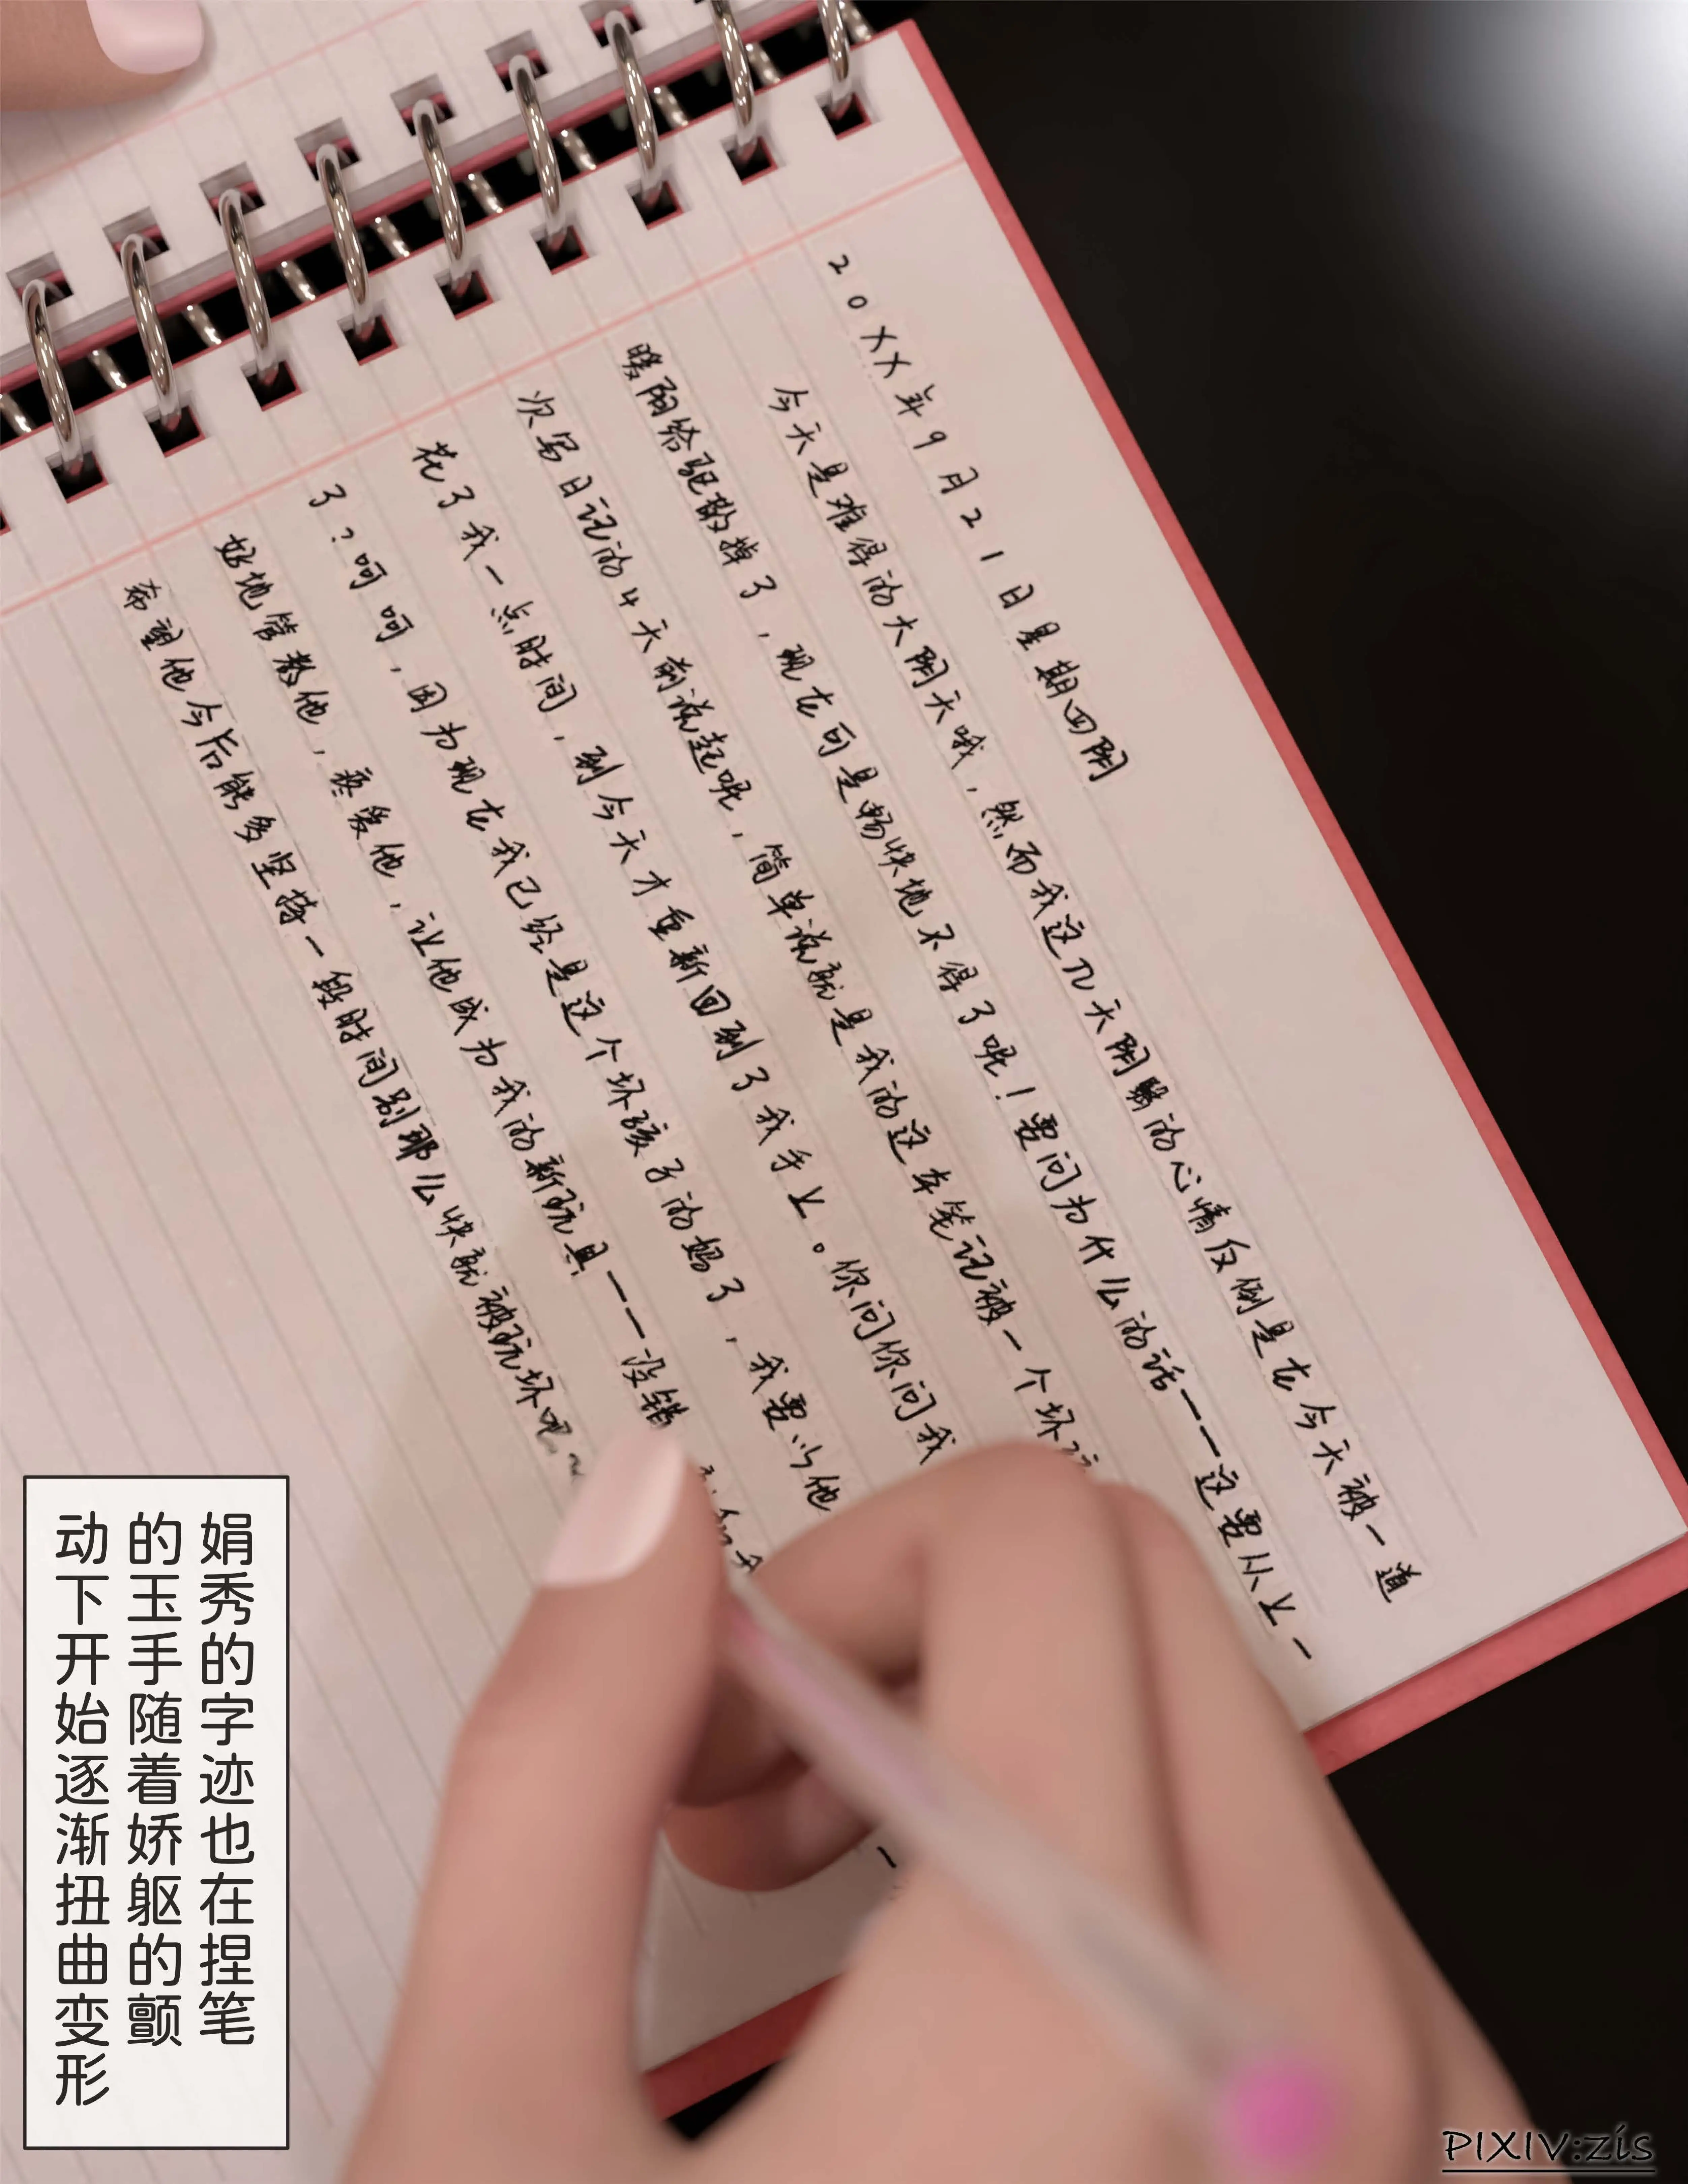 20XX年9月21日星期四阴
今天是难得的大阴天哦，然而我这几天阴翳的心情反倒是在今天被一道
暖阳给驱散掉了，现在可是畅快地不得了呢！要问为什么的话——这要从上一
次写日记的4天前说起呢，简单说就是我的这本笔记被一个坏
花了我一点时间，到今天才重新回到了我手上。你问你问我
了？呵呵，因为现在我已经是这个坏孩子的妈了，我要以他
好地管教他，疼爱他，让他成为我的新玩具——没错
希望他今后能多坚持一段时间别那么快就被玩坏吧~
娟秀的字迹也在捏笔
的玉手随着娇躯的颤
动下开始逐渐扭曲变形
PIXIV:zis